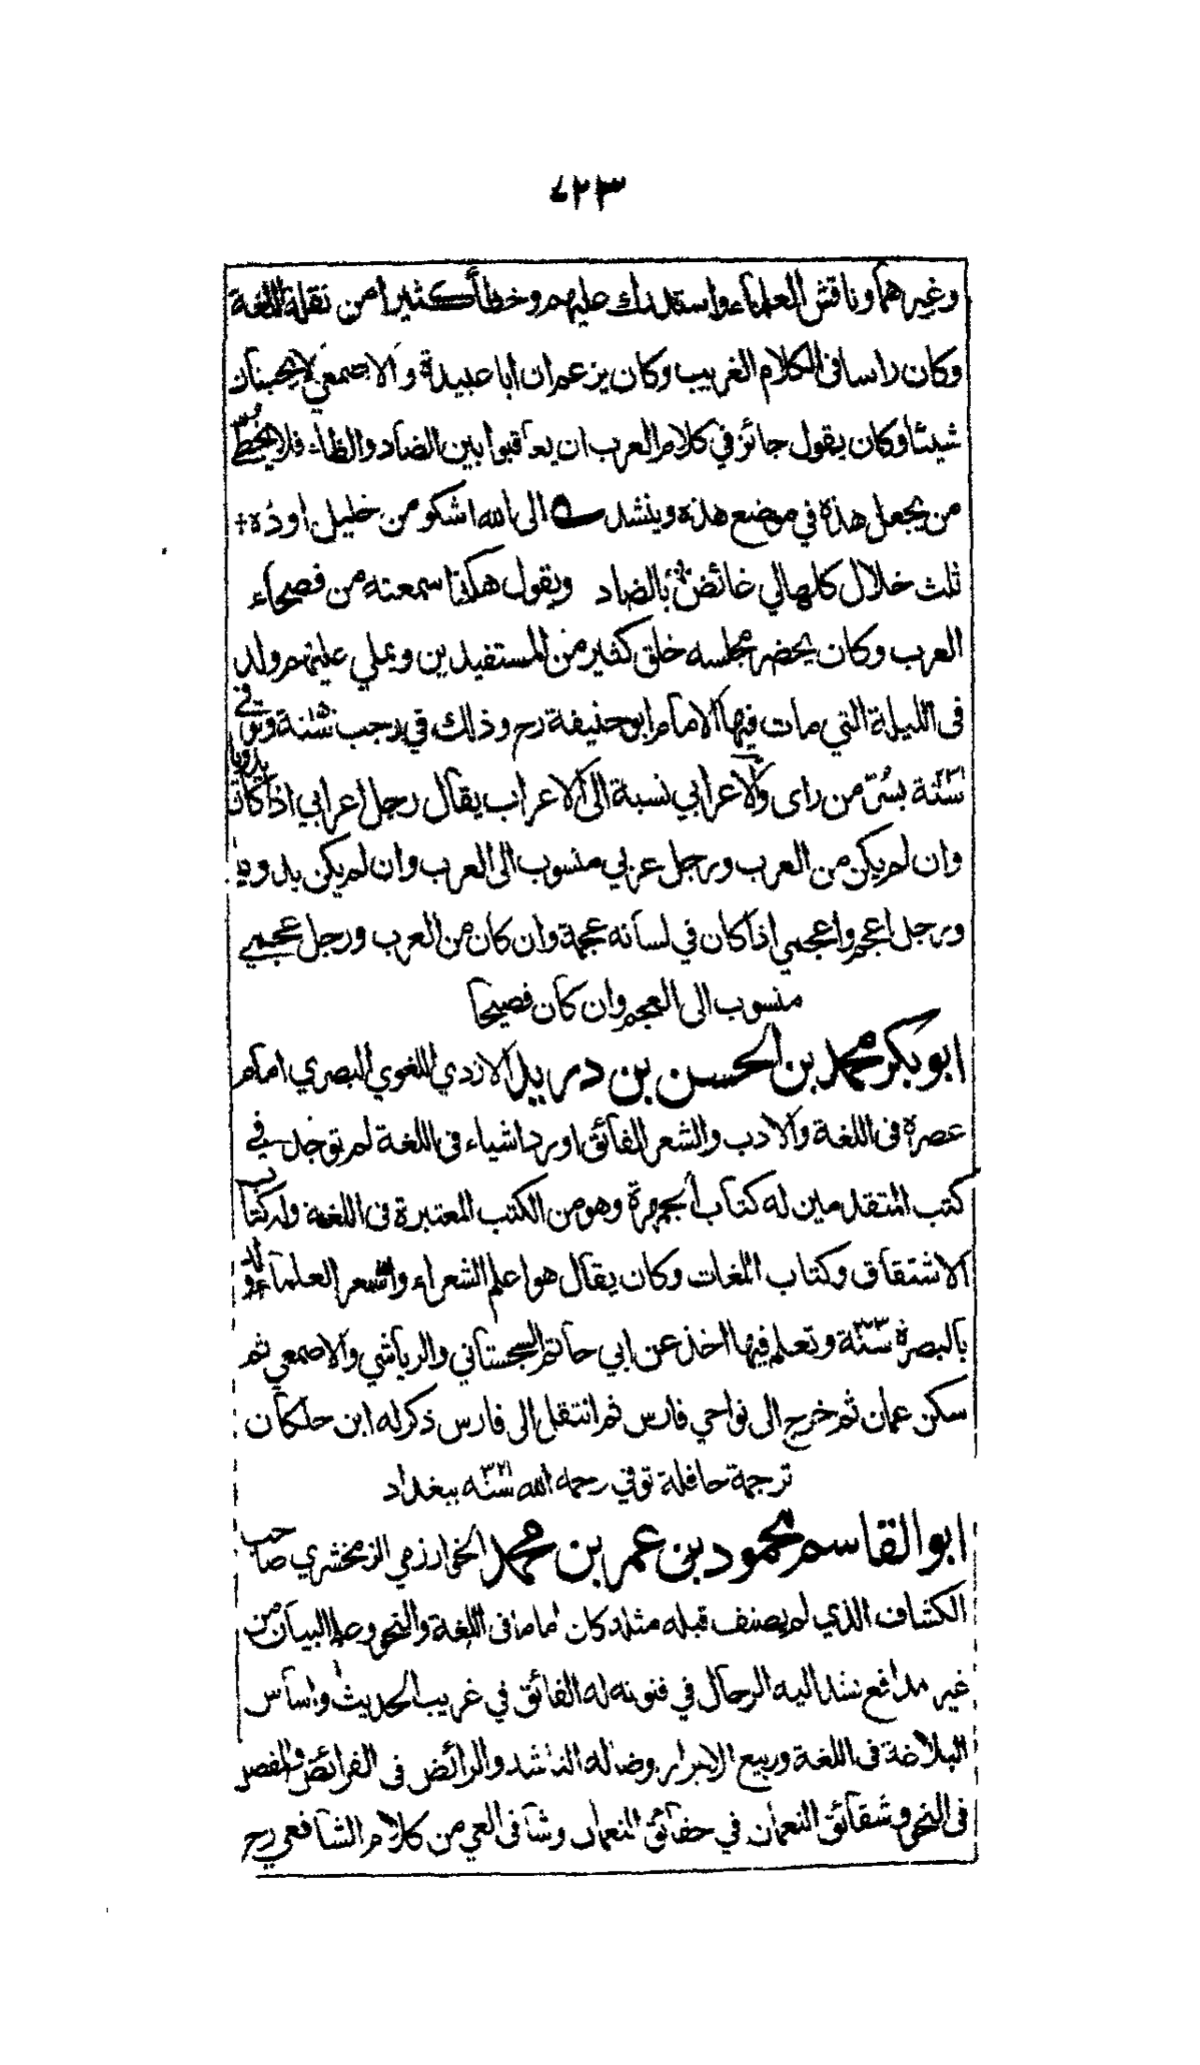 ٧٢٣
وغيرهما وناقش العلماء واستدرك عليهم وخطأ كثيرا من نقلة اللغة
وكان راسا في الكلام الغريب وكان يزعم ان ابا عبيدة والاصمعي لا يحسنان
شيئا وكان يقول جائز في كلام العرب ان يعاقبوا بين الضاد والظاء فلا يخطّئ
من يجعل هذه في موضع هذه وينشد الى الله اشكو من خليل اودّه
ثلث خلال كلها لي غائض بالضاد ويقول هكذا سمعته من فصحاء
العرب وكان يحضر مجلسه خلق كثير من المستفيدين ويملي عليهم ولد
في الليلة التي مات فيها الامام ابو حنيفة رح وذلك في رجب سنة وتوفي
سنة بسُرّ من راى والاعرابي نسبة الى الاعراب يقال رجل اعرابي اذا كان بدويا
وان لم يكن من العرب ورجل عربي منسوب الى العرب وان لم يكن بدويا
ورجل اعجم واعجمي اذا كان في لسانه عجمة وان كان من العرب ورجل عجمي
منسوب الى العجم وان كان فصيحا
ابو بكر محمد بن الحسن بن دريد الازدي اللغوي البصري امام
عصره في اللغة والادب والشعر الفائق اورد اشياء في اللغة لم توجد في
كتب المتقدمين له كتاب الجمهرة وهو من الكتب المعتبرة في اللغة وله كتاب
الاشتقاق وكتاب اللغات وكان يقال هو اعلم الشعراء واشعر العلماء ولد
بالبصرة سنة ٢٢٣ وتعلم فيها اخذ عن ابي حاتم السجستاني والرياشي والاصمعي ثم
سكن عمان ثم خرج الى نواحي فارس ثم انتقل الى فارس ذكر له ابن خلكان
ترجمة حافلة توفي رحمه الله سنة ٣٢١ ببغداد
ابو القاسم محمود بن عمر بن محمد الخوارزمي الزمخشري صاحب
الكشاف الذي لم يصنف قبله مثله كان اماما في اللغة والنحو وعلم البيان من
غير مدافع تشد اليه الرحال في فنونه له الفائق في غريب الحديث واساس
البلاغة في اللغة وربيع الابرار وضالة الناشد والرائض في الفرائض والمفصل
في النحو وشقائق النعمان في حقائق النعمان وشافى العي من كلام الشافعي رح